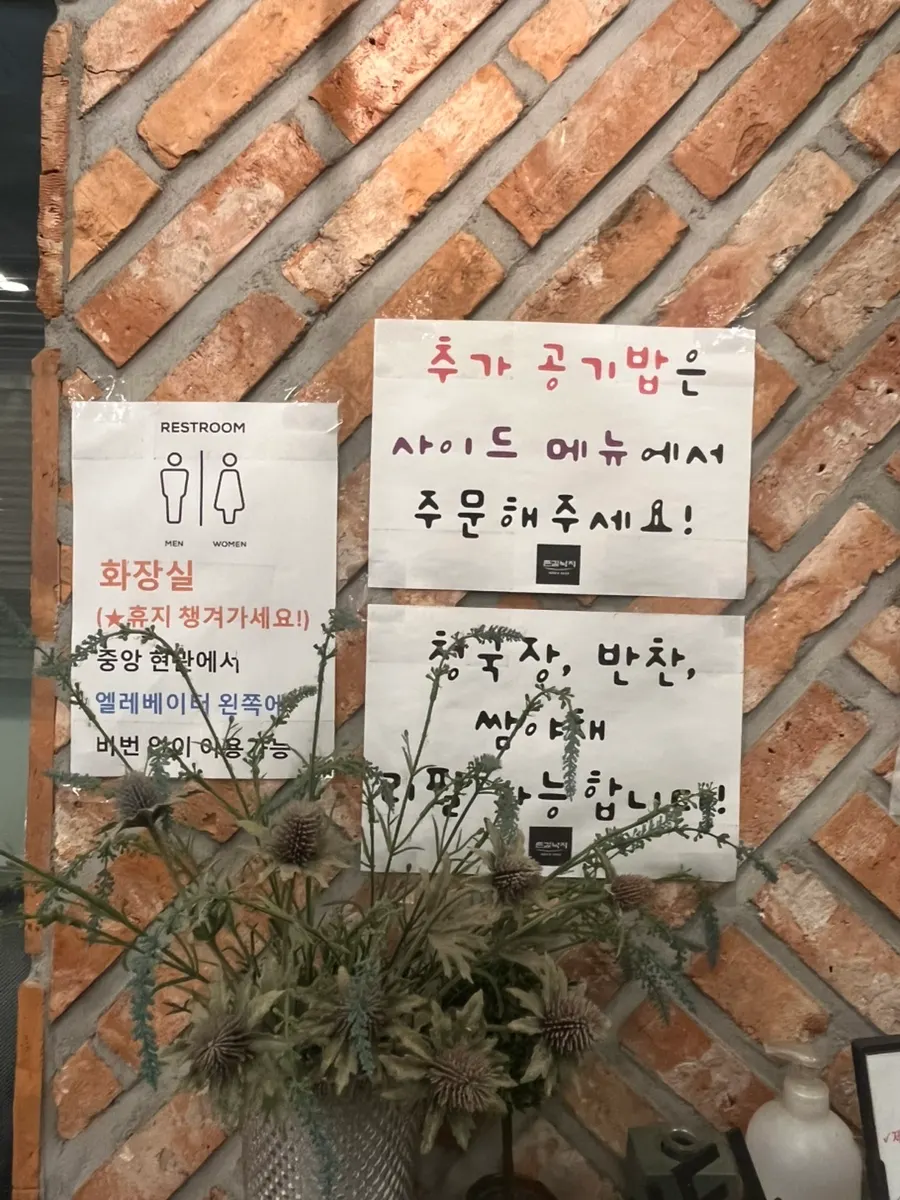 RESTROOM
MEN WOMEN
화장실
(★휴지 챙겨가세요!)
중앙 현관에서
엘레베이터 왼쪽에
비번 없이 이용가능
추가 공기밥은
사이드 메뉴에서
주문해주세요!
뜨고낙지
청국장, 반찬,
쌈야채
리필가능합니다!
뜨고낙지